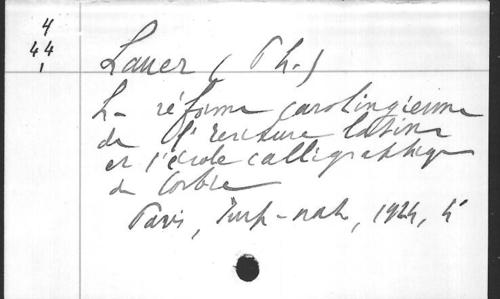 4
44
1
Lauer (Ph.)
La réforme carolingienne
de l'écriture latine
et l'école calligraphique
de Corbie
Paris, Imp-nat, 1924, 4°